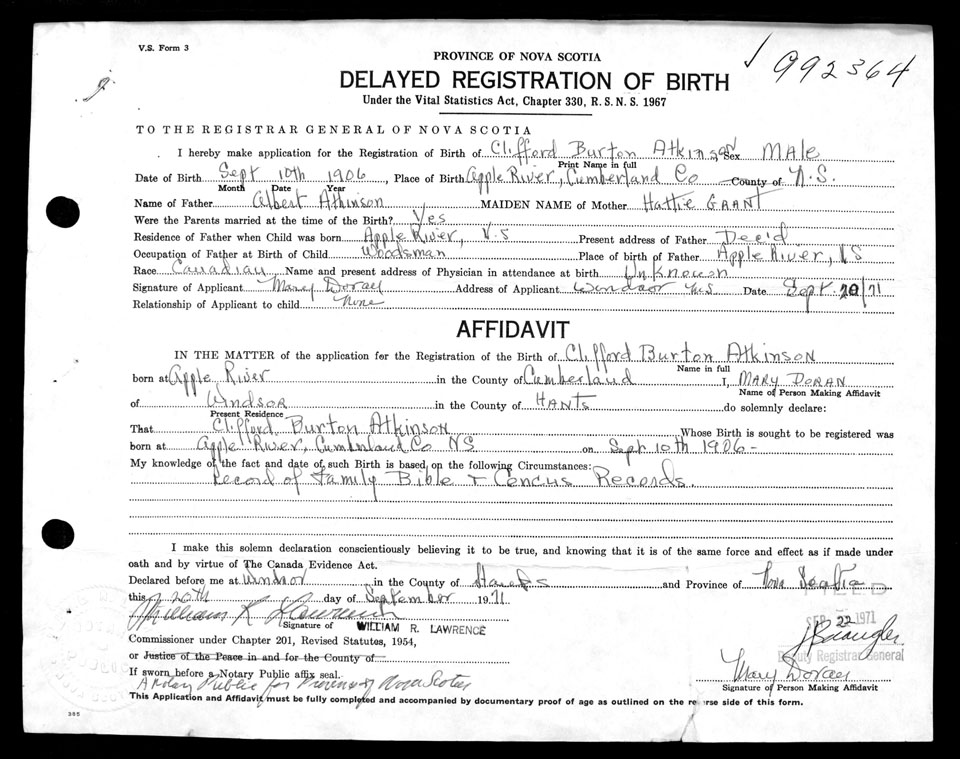 V.S. Form 3
992364
PROVINCE OF NOVA SCOTIA
DELAYED REGISTRATION OF BIRTH
Under the Vital Statistics Act, Chapter 330, R.S.N.S. 1967
TO THE REGISTRAR GENERAL OF NOVA SCOTIA
I hereby make application for the Registration of Birth of Clifford Burton Atkinson Sex MALE
Print Name in full
Date of Birth Sept 10th 1906, Place of Birth Apple River, Cumberland Co County of N.S.
Month Date Year
Name of Father Albert Atkinson MAIDEN NAME of Mother Hattie GRANT
Were the Parents married at the time of the Birth? Yes
Residence of Father when Child was born Apple River, N.S Present address of Father Dec'd
Occupation of Father at Birth of Child Woodsman Place of birth of Father Apple River, NS
Race Canadian Name and present address of Physician in attendance at birth Unknown
Signature of Applicant Mary Doran Address of Applicant Windsor N.S Date Sept 20/71
Relationship of Applicant to child None
AFFIDAVIT
IN THE MATTER of the application for the Registration of the Birth of Clifford Burton Atkinson
Name in full
born at Apple River in the County of Cumberland I, MARY DORAN
Name of Person Making Affidavit
of Windsor in the County of HANTS do solemnly declare:
Present Residence
That Clifford Burton Atkinson Whose Birth is sought to be registered was
born at Apple River, Cumberland Co NS on Sept 10th 1906-
My knowledge of the fact and date of such Birth is based on the following Circumstances:
Record of Family Bible + Cencus Records.
I make this solemn declaration conscientiously believing it to be true, and knowing that it is of the same force and effect as if made under
oath and by virtue of The Canada Evidence Act.
Declared before me at Windsor in the County of Hants and Province of Nova Scotia
this 20th day of September 1971
FILED
SEP 22 1971
William R Lawrence
Signature of WILLIAM R. LAWRENCE
Commissioner under Chapter 201, Revised Statutes, 1954,
or Justice of the Peace in and for the County of
Deputy Registrar General
If sworn before a Notary Public affix seal.
Mary Doran
A Notary Public for Province of Nova Scotia
Signature of Person Making Affidavit
This Application and Affidavit must be fully completed and accompanied by documentary proof of age as outlined on the reverse side of this form.